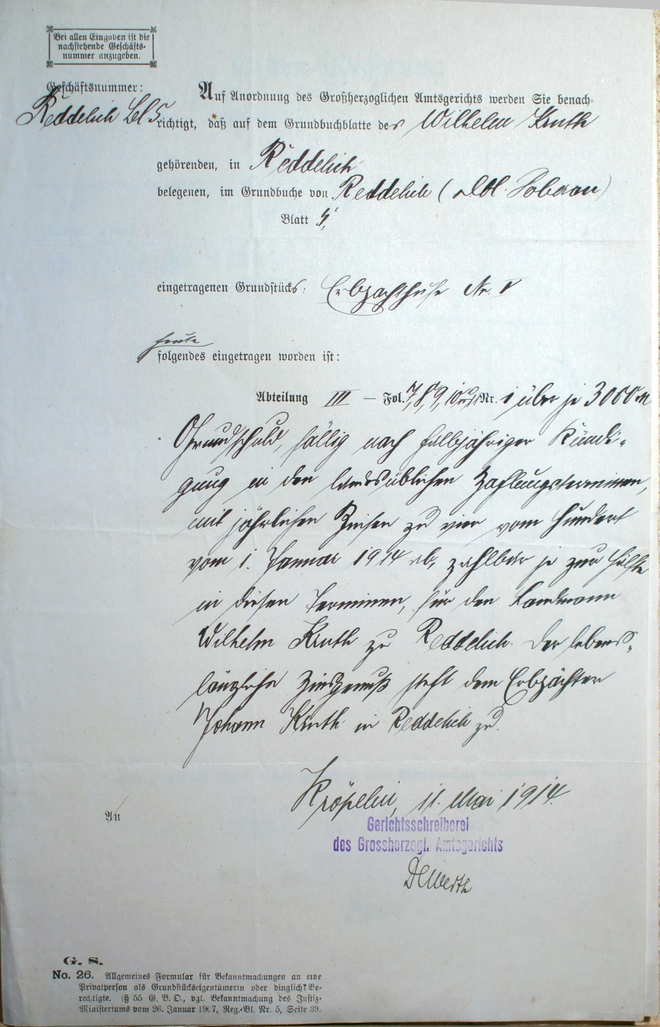 Bei allen Eingaben ist die
nachstehende Geschäfts-
nummer anzugeben.
Geschäftsnummer:
Reddelich Bl 5
Auf Anordnung des Großherzoglichen Amtsgerichts werden Sie benach-
richtigt, daß auf dem Grundbuchblatte des Wilhelm Kruth
gehörenden, in Reddelich
belegenen, im Grundbuche von Reddelich (Abl. Doberan)
Blatt 5,
eingetragenen Grundstücks: Erbpachthufe Nr. V
heute
folgendes eingetragen worden ist:
Abteilung III – Fol. 7, 8, 9, 10 Nr. 1 über je 3000 M
Grundschuld, fällig nach halbjähriger Kündi-
gung in den landesüblichen Zahlungsterminen,
mit jährlichen Zinsen zu vier vom Hundert
vom 1. Januar 1914 ab, zahlbar je zur Hälfte
in diesen Terminen, für den Landmann
Wilhelm Kruth zu Reddelich. Der lebens-
längliche Zinsgenuß steht dem Erbpächter
Johann Kruth in Reddelich zu.
Kröpelin, 11. Mai 1914.
Gerichtsschreiberei
des Grossherzogl. Amtsgerichts
An
G. S.
No. 26. Allgemeines Formular für Bekanntmachungen an eine
Privatperson als Grundstückseigentümerin oder dinglich Be-
rechtigte. (§ 55 G. B. O., vgl. Bekanntmachung des Justiz-
Ministeriums vom 26. Januar 1907, Reg.-Bl. Nr. 5, Seite 39.